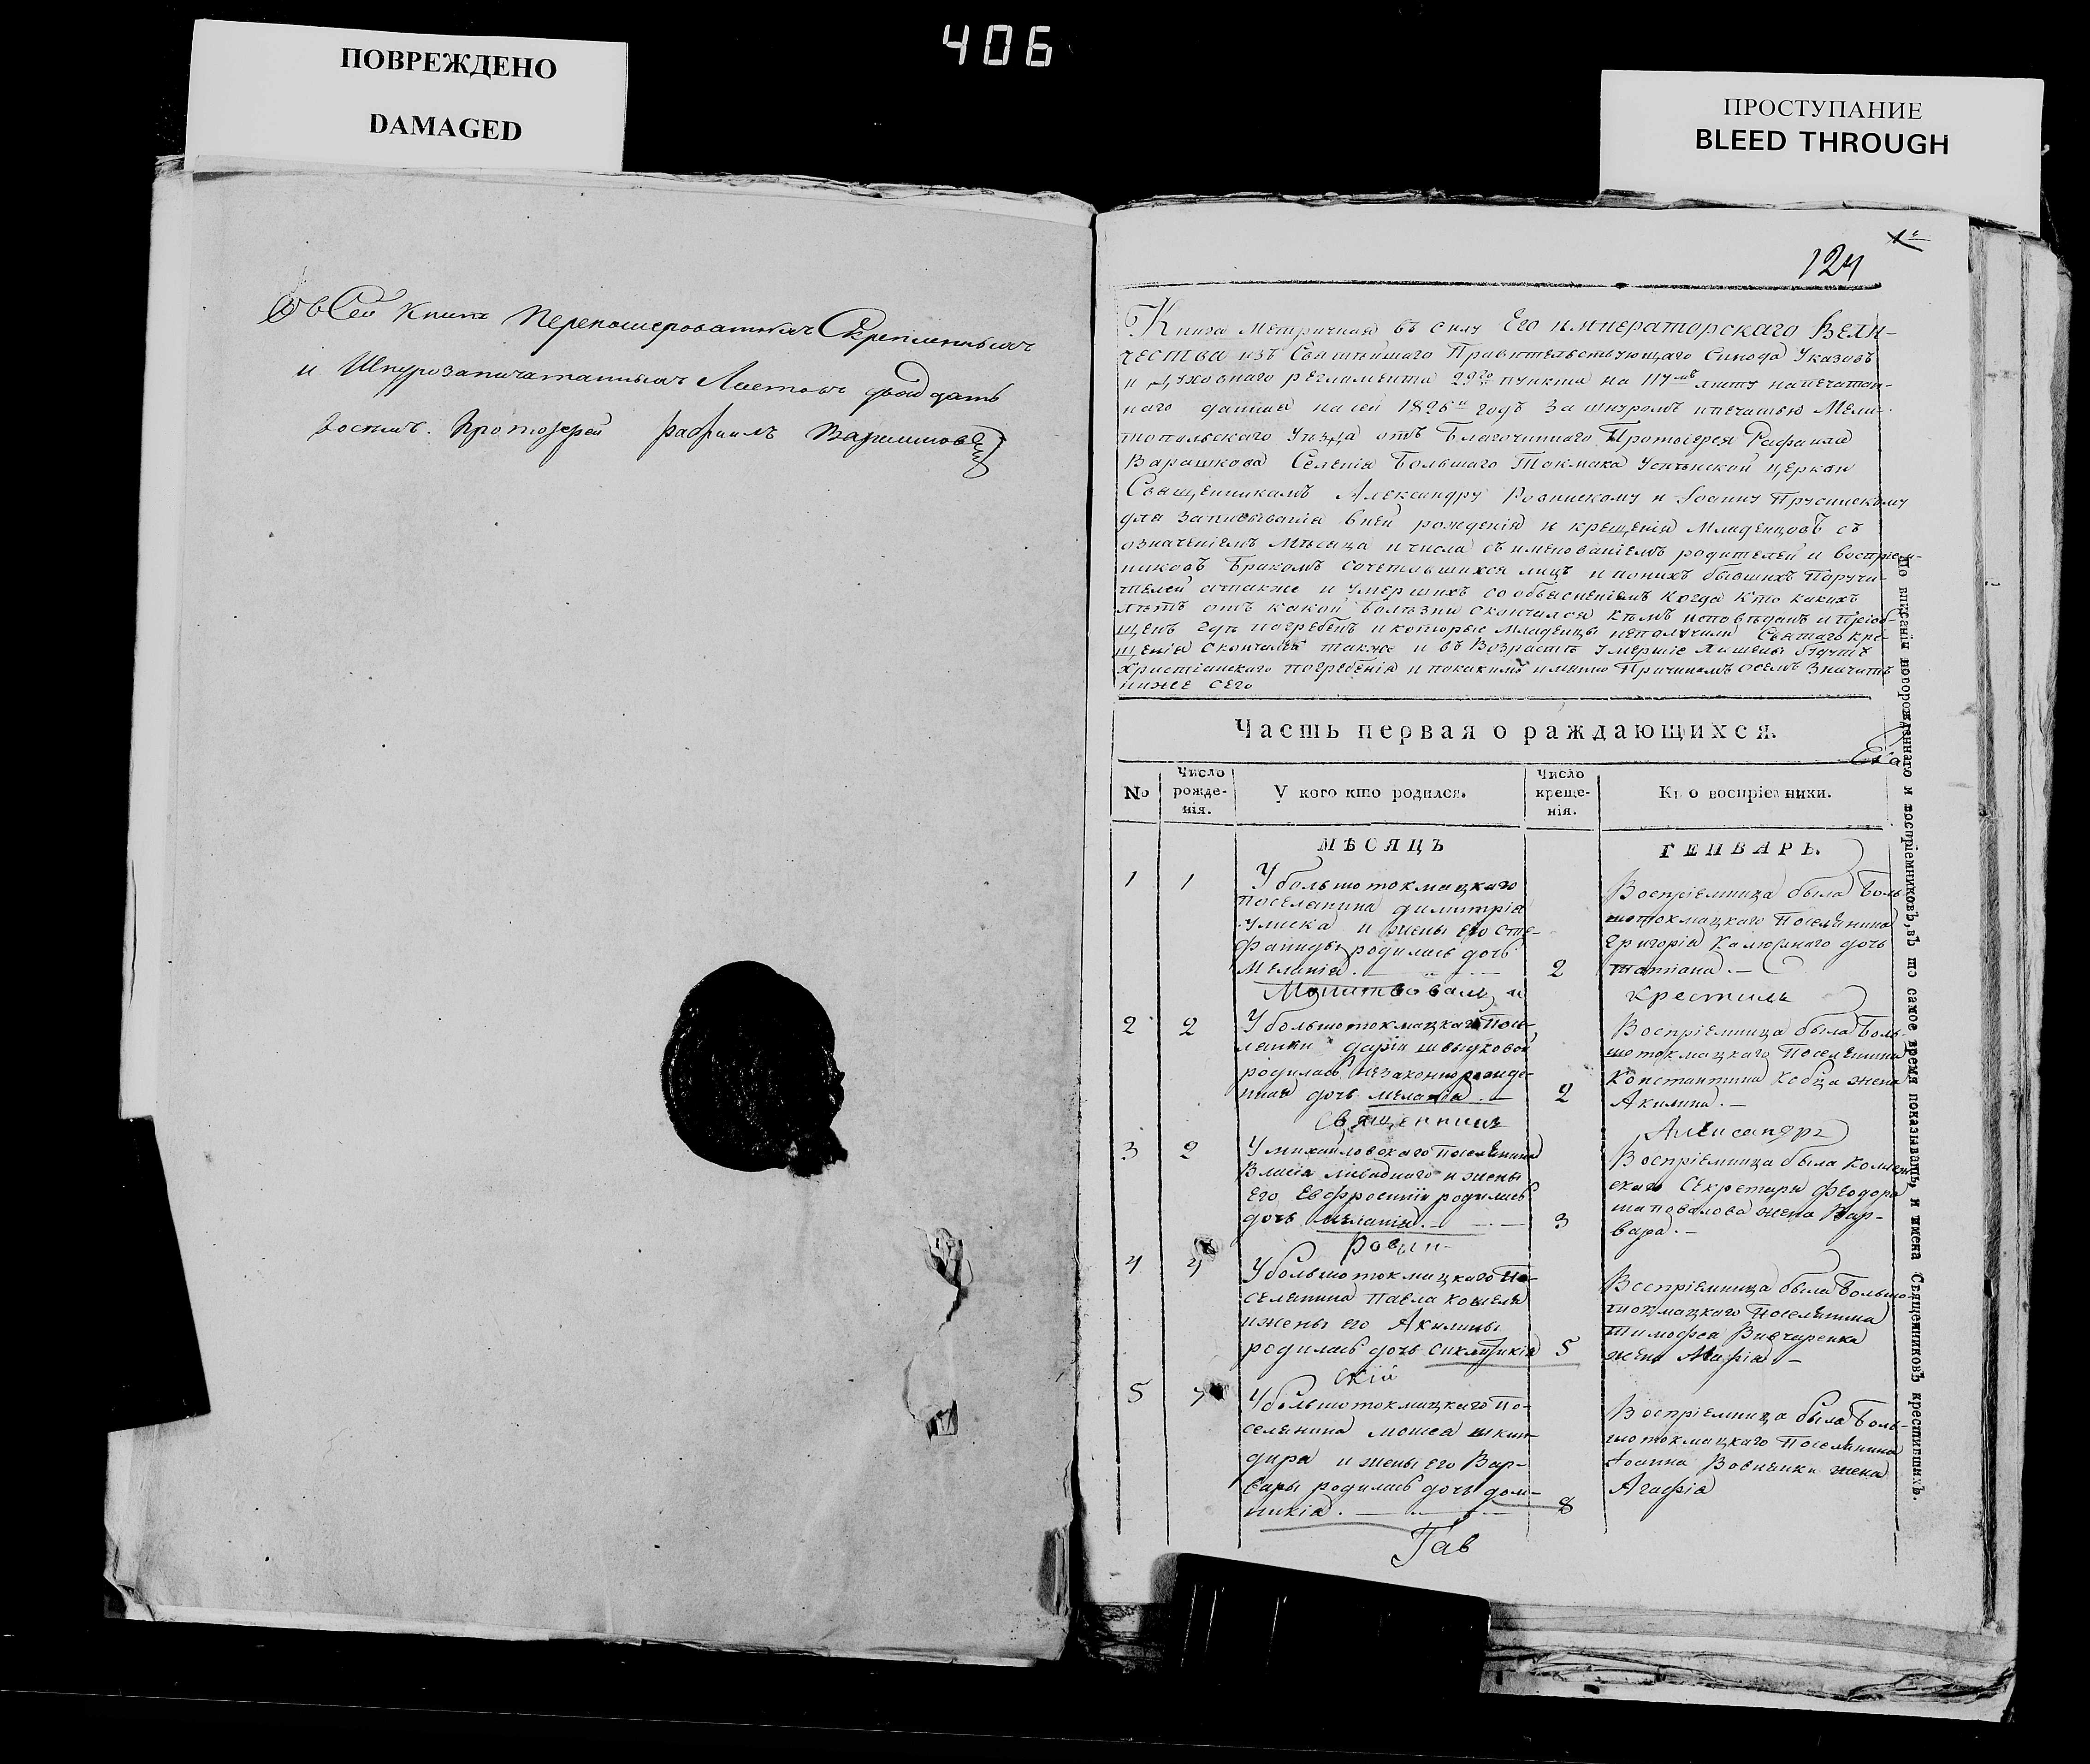 ПОВРЕЖДЕНО
DAMAGED
406
ПРОСТУПАНИЕ
BLEED THROUGH
въ Сей Книге Перено­мерованныхъ Скрепленныхъ
и Шнурозапечатанныхъ Листовъ двадцать
восемь. Протоіерей Рафаилъ
124
Книга Метричная въ силу Его императорскаго Вели-
чества изъ Святейшаго Правительствующаго Синода Указовъ
и Духовнаго регламента 29го пункта на 117мъ листу напечатан-
наго данная на сей 1826й годъ за шнуромъ и печатью Мели-
топольскаго Уезда отъ Благочиннаго Протоіерея Рафаила
Варашкова Селенія Большаго Токмака Успенской церкви
Священникамъ Александру Ровинскому и Іоанну Прусинскому
для записыванія в ней рожденія и крещенія Младенцовъ съ
означеніемъ Месяца и числа съ именованіемъ родителей и воспріем-
никовъ Бракомъ сочетавшихся лицъ и по нихъ бывшихъ Поручи-
телей а также и Умершихъ со объясненіемъ когда кто какихъ
летъ отъ какой болезни скончался кемъ исповеданъ и пріоб-
щенъ где погребенъ и которые Младенцы не получили Святаго кре-
щенія скончались также и въ Возрасте Умершіе Лишены будутъ
Христіанскаго погребенія и по какимъ имянно Причинамъ о семъ Значитъ
ниже сего
Часть первая о раждающихся.
No
Число рожде- нія.
У кого кто родился.
Число креще- нія.
Кто воспріемники.
МѢСЯЦЪ
ГЕНВАРЬ.
1 1 У большотокмацкаго
поселянина димитрія
Улиска и жены его Сте-
фаниды родилась дочь
Меланія. 2
Воспріемница была Боль-
шотокмацкаго Поселянина
Григорія Калюжнаго дочь
татіана.
Молитвовалъ и
крестилъ
2 2 У большотокмацкой Посе-
лянки даріи швыдковой
родилась незаконнорожде-
нная дочь меланія 2
Воспріемница была Боль-
шотокмацкаго Поселянина
Константина Кобца жена
Акилина.
Священникъ
Александръ
3 2 У михайловскаго поселянина
Власія ливаднаго и жены
Его Евфросиніи родилась
дочь меланія. 3
Воспріемница была Коллеж-
скаго Секретаря Феодора
шаповалова жена Вар-
вара.
Ровин-
4 4 У большотокмацкаго По-
селянина Павла кошеля
и жены его Акилины
родилась дочь синклитикія 5
Воспріемница была большо-
токмацкаго Поселянина
тимофея Вивчаренка
жена Марія
скій
5 7 У большотокмацкаго по-
селянина моисея шкан-
дира и жены его Вар-
вары родилась дочь дом-
никія. 8
Воспріемница была Боль-
шотокмацкаго Поселянина
Іоанна Вовненки жена
Агафія
Гав
По видѣніи новорожденнаго и воспріемниковъ, въ то самое время показывать, и имена Священниковъ крестившихъ.